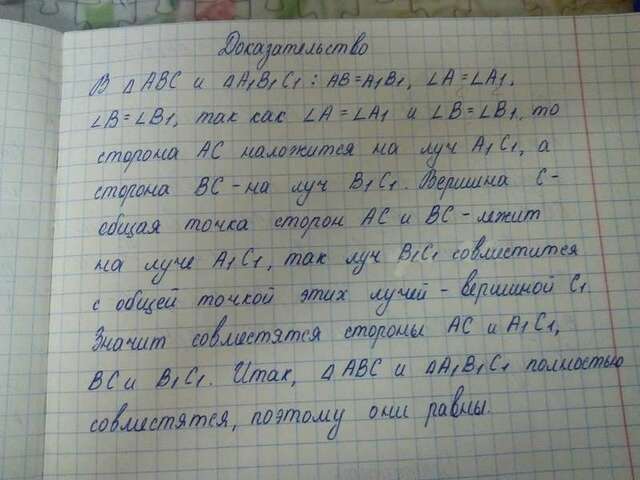 Доказательство
В △ABC и △A₁B₁C₁: AB=A₁B₁, ∠A=∠A₁,
∠B=∠B₁, так как ∠A=∠A₁ и ∠B=∠B₁, то
сторона AC наложится на луч A₁C₁, а
сторона BC - на луч B₁C₁. Вершина C -
общая точка сторон AC и BC - лежит
на луче A₁C₁, так луч B₁C₁ совместится
с общей точкой этих лучей - вершиной C₁.
Значит совместятся стороны AC и A₁C₁,
BC и B₁C₁. Итак, △ABC и △A₁B₁C₁ полностью
совместятся, поэтому они равны.